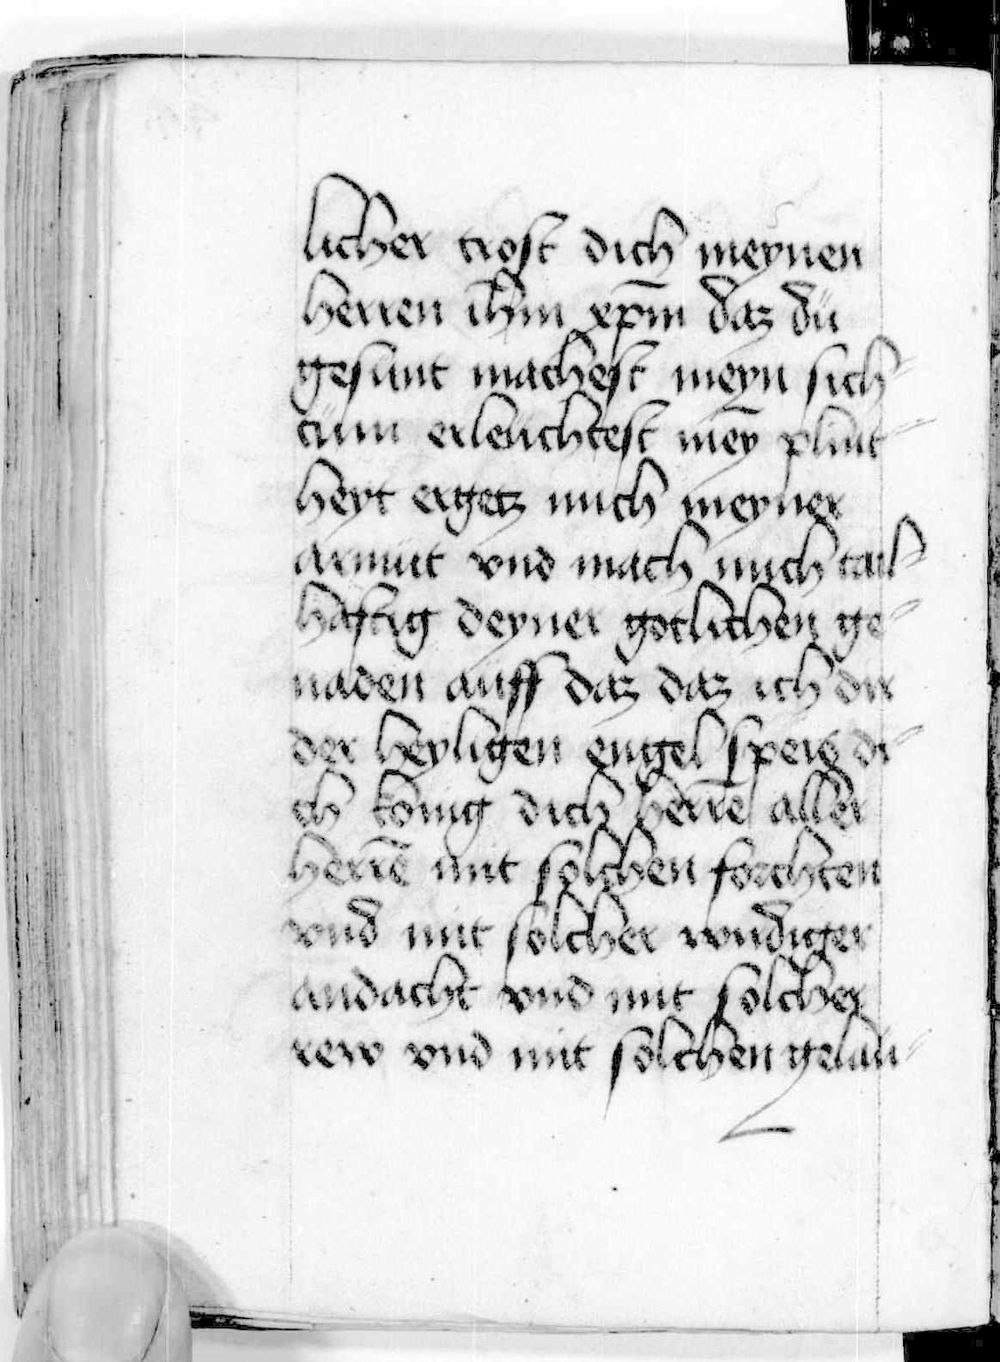 licher trost dich meynen
herren ih̄m xp̄m daz dü
gesunt machest meyn sich-
tüm erleüchtest mey̅ plint-
heyt ergetz mich meyner
armüt vnd mach mich tail
hafftig deyner gotlichen ge-
naden auff daz daz ich dir
der heyligen engel speis di-
ch konig dich herre̅ aller
herre̅ mit solchen forchten
vnd mit solcher wirdiger
andacht vnd mit solcher
rew vnd mit solchen gelaü-